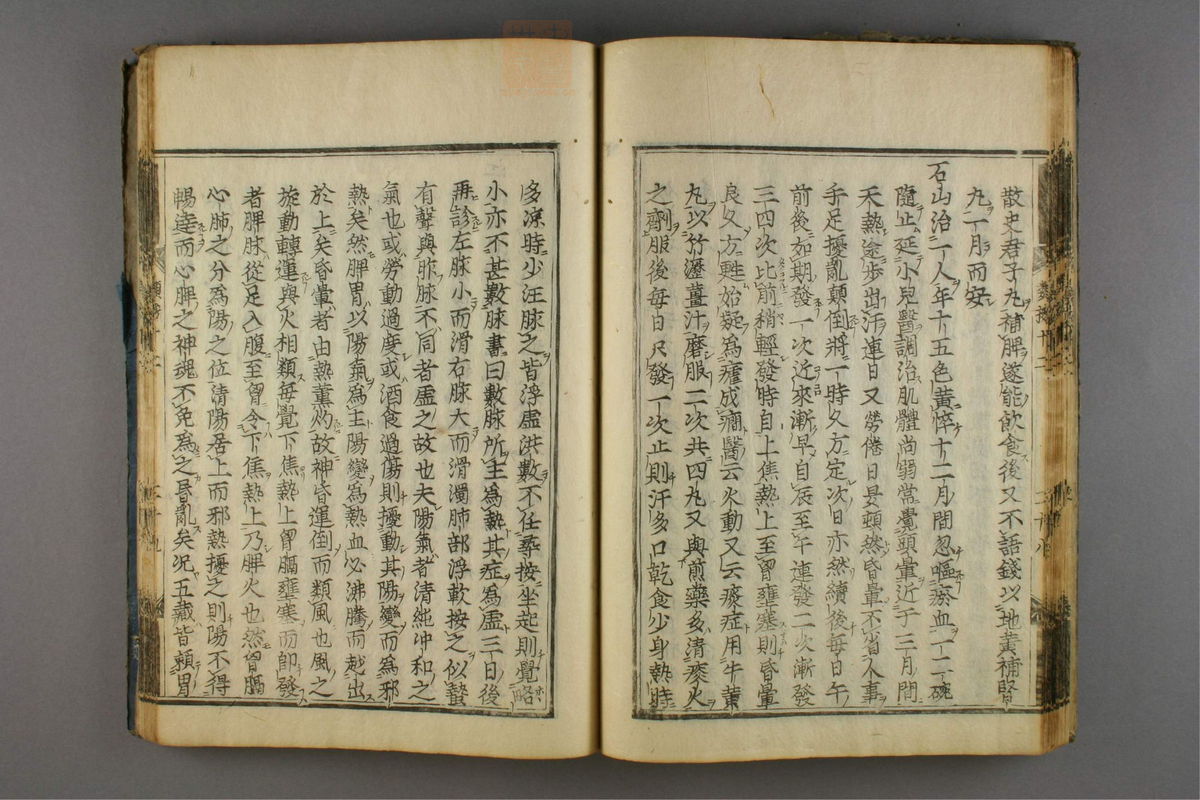 散史君子丸補脾遂能飲食後又不語錢以地黃補腎
九一月而安
石山治一人年十五色黃悴十二月間忽嘔瘀血一二碗
隨止延小兒醫調治肌體尚弱常覺頭暈近于三月間
天熱途步出汗連日又勞倦日昃頓然昏暈不省人事
手足擾亂顛倒將一時久方定次日亦然續後每日午
前後如期發一次近來漸早自辰至午連發二次漸發
三四次比前稍輕發時自上焦熱上至胃壅塞則昏暈
良久方甦始疑為瘧成癇醫云火動又云痰症用牛黃
丸以竹瀝薑汁磨服二次共四丸又與煎藥多清痰火
之劑服後每日只發一次止則汗多口乾食少身熱時
多凉時少汪脉之皆浮虛洪數不任尋按坐起則覺略
小亦不甚數脉書曰數脉所主為熱其症為虛三日後
再診左脉小而滑右脉大而滑濁肺部浮軟按之似蟄
有聲與昨脉不同者虛之故也夫陽氣者清純冲和之
氣也或勞動過度或酒食過傷則擾動其陽變而為邪
熱矣然脾胃以陽氣為主陽變為熱血必沸騰而越出
於上矣昏暈者由熱薰灼故神昏運倒而類風也風之
旋動轉運與火相類每覺下焦熱上胃膈壅塞而即發
者脾脉從足入腹至胃令下焦熱上乃脾火也然胃膈
心肺之分為陽之位清陽居上而邪熱擾之則陽不得
暢達而心脾之神魂不免為之昏亂矣況五藏皆賴胃